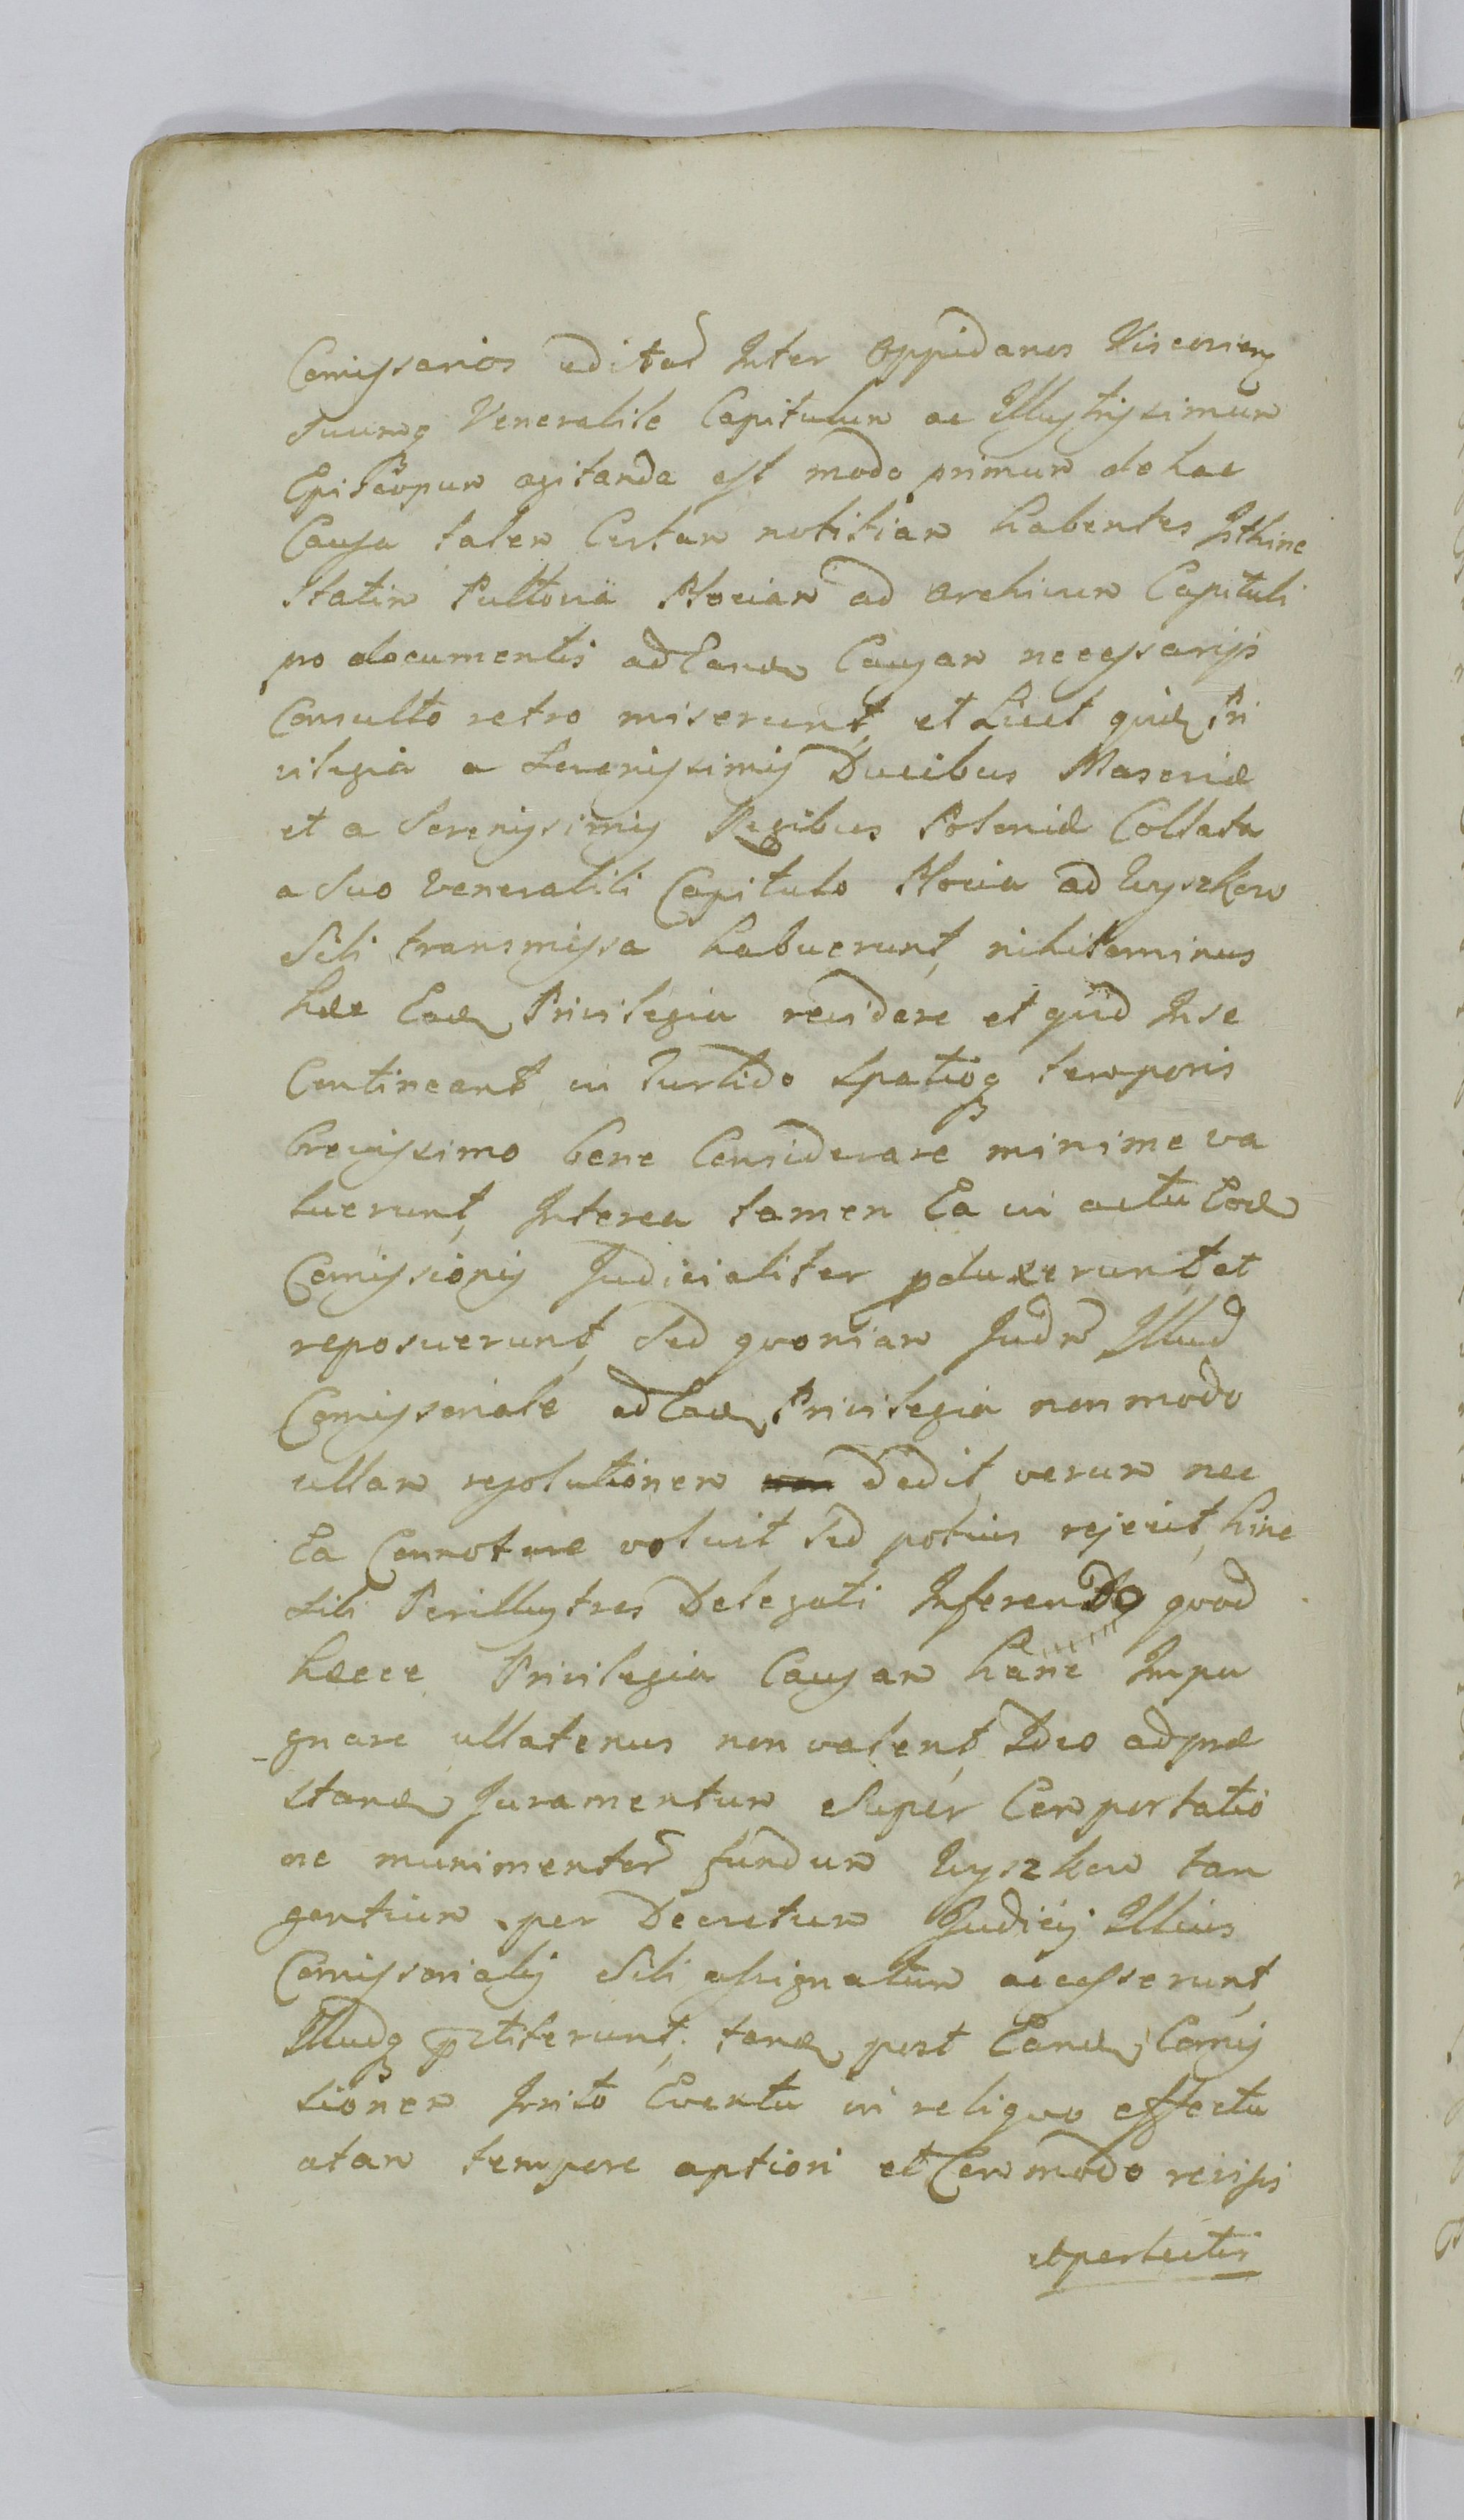 Comissarios editas Inter Oppidanos Viscovien
Suumq Venerabile Capitulum ac Illustrissimum
Episcopum agitanda est modo primum de hac
Causa talem Certam notitiam habentes Isthinc
Statim Pultovia Plociam ad Archivum Capituli
pro documentis ad Eandem Causam necessarijs
Consulto retro miserunt, et Licet quidem Pri
vilegia a Serenissimis Ducibus Masoviæ
et a Serenissimis Regibus Poloniæ Collata
a Suo Venerabili Capitulo Plocia ad Wyszkow
Sibi transmissa habuerunt, nihilominus
hæc Eadem Privilegia revidere et quid Inse
Contineant in turbido Spatioq temporis
brevissimo bene Considerare minime va
luerunt, Interea tamen Ea in actu Eod
Comissionis Judicialiter produxerunt et
reposuerunt, Sed quoniam Judm Illud
Comissoriale ad Eadem Privilegia non modo
ullam resolutionem dedit, verum nec
Ea Connotare voluit Sed potius rejecit, hinc
Sibi Perillustres Delegati Inferendo quod
hæcce Privilegia Causam hanc Impu
gnare ullatenus non valent, Ideo ad præ
standum Juramentum Super Comportatio
ne munimentor fundum Wyszkow tan
gentium per Decretum Judicij Illius
Comissorialis Sibi assignatum accesserunt,
Illudq prestiterunt, tandem post Eandem Comis
sionem Irrito Eventu in reliquo effectu
atam tempore aptiori et Commodo revisis
et perlectis